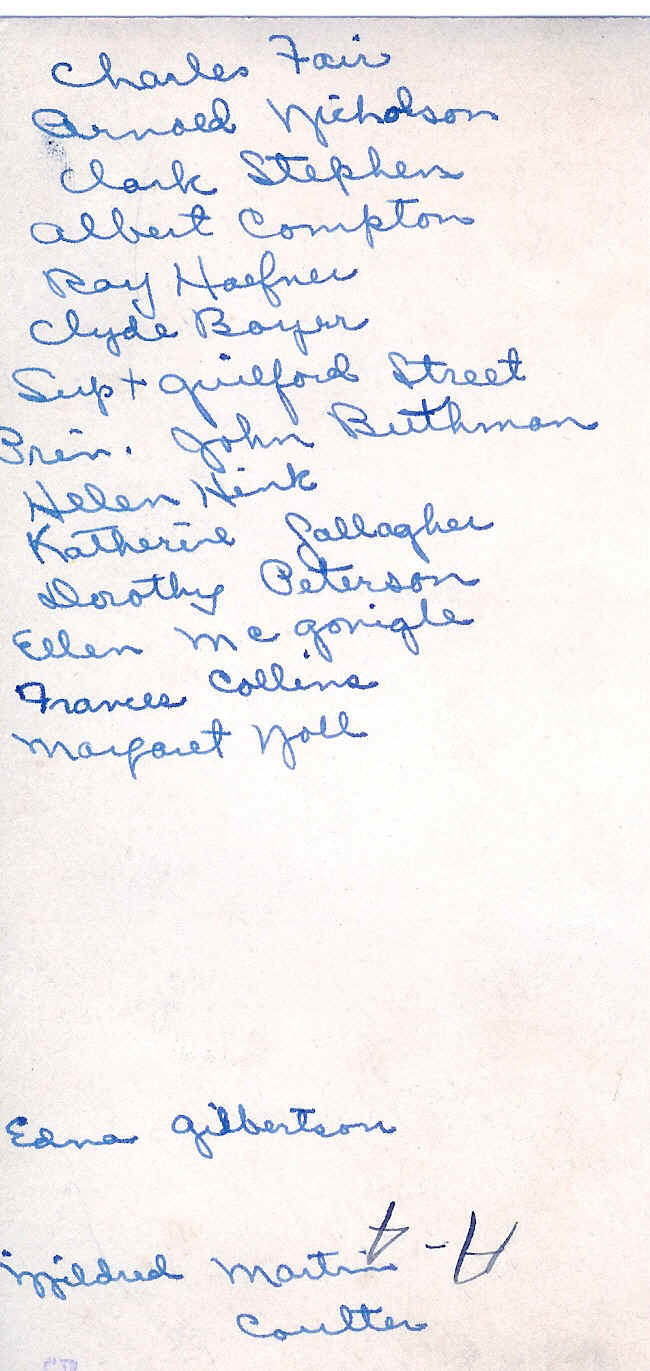 Charles Fair
Arnold Nicholson
Clark Stephens
Albert Compton
Ray Haefner
Clyde Boyer
Supt Guilford Street
Prin. John Buthman
Helen Hink
Katherine Gallagher
Dorothy Peterson
Ellen McGonigle
Frances Collins
Margaret Noll
Edna Gilbertson
A-4
Mildred Martin
Coulter